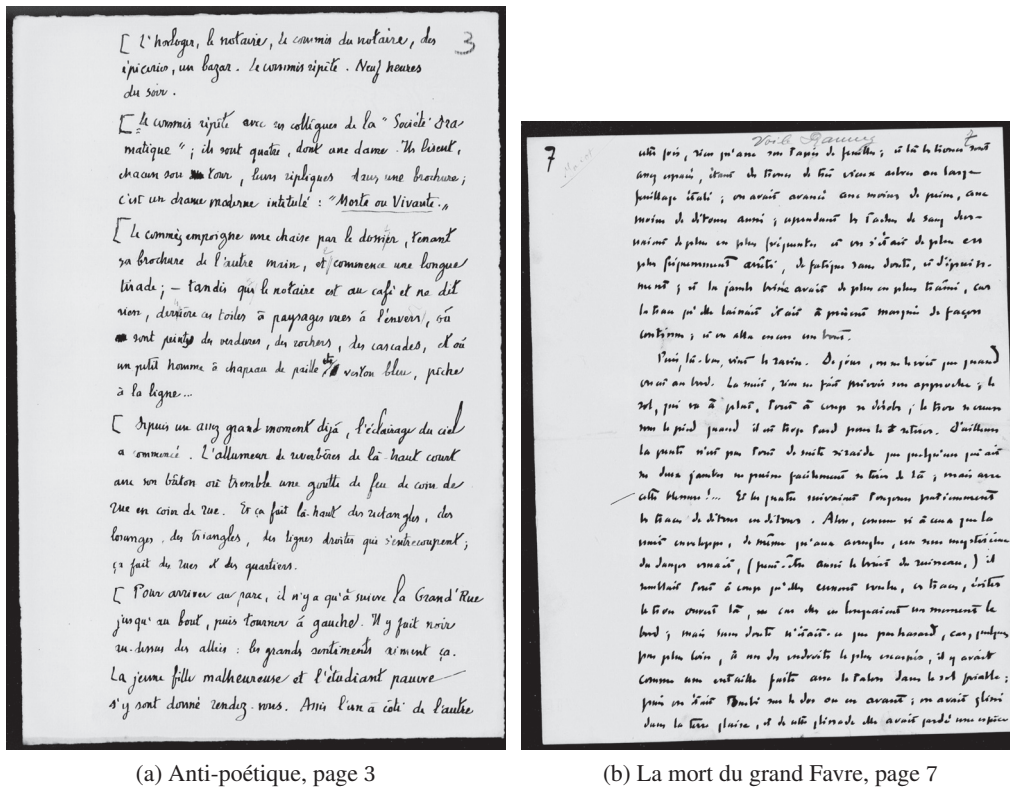 3
[ L'horloger, le notaire, le commis du notaire, des
épiceries, un bazar. Le commis répète. Neuf heures
du soir.
[ Le commis répète avec ses collègues de la "Société Dra
matique"; ils sont quatre, dont une dame. Ils lisent,
chacun son tour, leurs répliques dans une brochure;
c'est un drame moderne intitulé : "Morte ou Vivante."
[ Le commis empoigne une chaise par le dossier, tenant
sa brochure de l'autre main, et commence une longue
tirade; – tandis que le notaire est au café et ne dit
rien, derrière ces toiles à paysages vues à l'envers, où
sont peints des verdures, des rochers, des cascades, et où
un petit homme à chapeau de paille et veston bleu, pêche
à la ligne...
[ Depuis un assez grand moment déjà, l'éclairage du ciel
a commencé. L'allumeur de réverbères de là-haut court
avec son bâton où tremble une goutte de feu de coin de
rue en coin de rue. Et ça fait là-haut des rectangles, des
losanges, des triangles, des lignes droites qui s'entrecoupent;
ça fait des rues et des quartiers.
[ Pour arriver au parc, il n'y a qu'à suivre la Grand'Rue
jusqu'au bout, puis tourner à gauche. Il y fait noir
au-dessus des allées : les grands sentiments aiment ça.
La jeune fille malheureuse et l'étudiant pauvre
s'y sont donné rendez-vous. Assis l'un à côté de l'autre
(a) Anti-poétique, page 3
7
7
cette fois, rien qu'avec son tapis de feuilles; et là les troncs sont
assez espacés, étant des troncs de très vieux arbres au large
feuillage étalé; on avait avancé avec moins de peine, avec
moins de détours aussi; cependant les taches de sang deve-
naient de plus en plus fréquentes et on s'était de plus en
plus fréquemment arrêté, de fatigue sans doute, et d'épuise-
ment; et la jambe brisée avait de plus en plus traîné, car
la trace qu'elle laissait était à présent marquée de façon
continue; et on alla encore un bout.
Puis, là-bas, vient le ravin. De jour, on ne le voit que quand
on est au bord. La nuit, rien ne fait prévoir son approche; le
sol, qui va à plat, tout à coup se dérobe; le trou se creuse
sous le pied quand il est trop tard pour le retirer. D'ailleurs
la pente n'est pas tout de suite si raide que quelqu'un qui ait
ses deux jambes ne puisse facilement se tirer de là; mais avec
cette blessure!... Et les quatre suivaient toujours patiemment
les traces de détour en détour. Alors, comme si à ceux que la
nuit enveloppe, de même qu'aux aveugles, un sens mystérieux
du danger venait, (peut-être aussi le bruit du ruisseau,) il
semblait tout à coup qu'elles eussent voulu, ces traces, éviter
le trou ouvert là, car elles en longeaient un moment le
bord; mais sans doute n'était-ce que par hasard, car, quelques
pas plus loin, à un des endroits les plus escarpés, il y avait
comme une entaille faite avec le talon dans le sol friable;
puis on était tombé sur le dos ou en avant; on avait glissé
dans la terre glaise, et de cette glissade elle avait gardé une espèce
(b) La mort du grand Favre, page 7